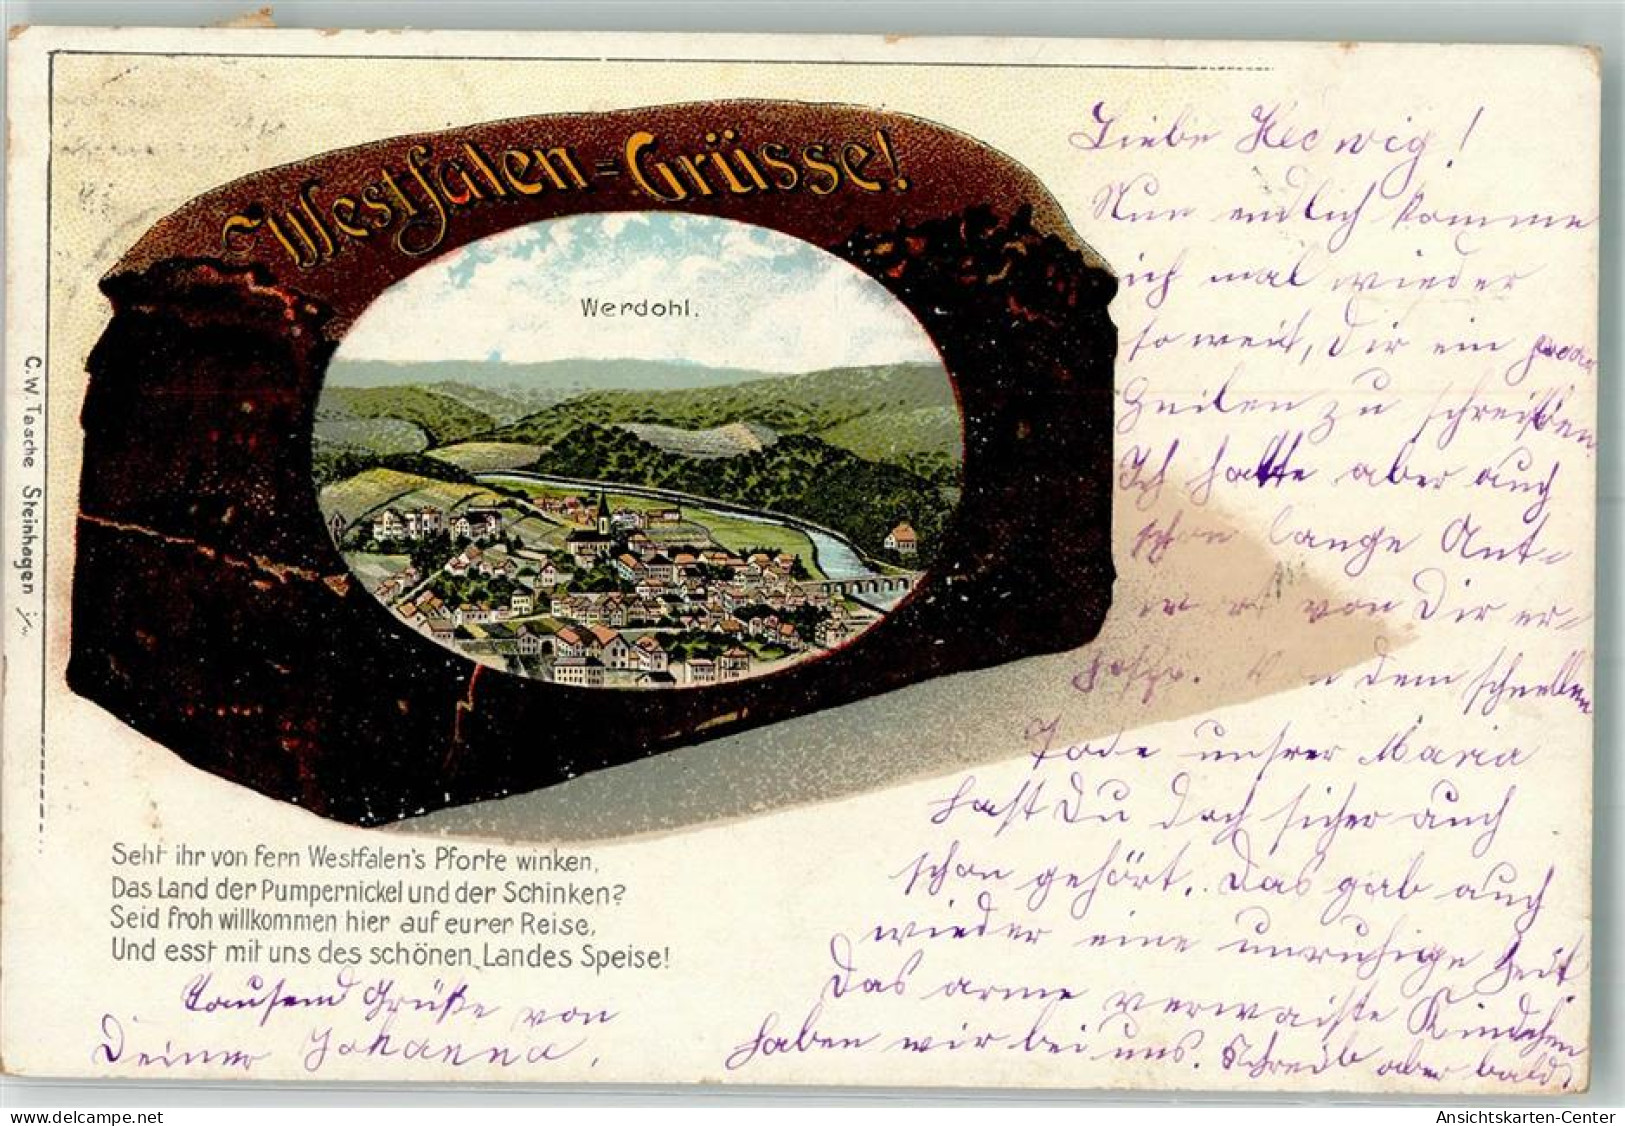 Westfalen=Grüsse!
Werdohl.
C. W. Tasche Steinhagen i/W.
Seht ihr von fern Westfalen's Pforte winken,
Das Land der Pumpernickel und der Schinken?
Seid froh willkommen hier auf eurer Reise,
Und esst mit uns des schönen Landes Speise!
Liebe Hedwig!
Nun endlich komme
ich mal wieder
so weit, Dir ein paar
Zeilen zu schreiben.
Ich hatte aber auch
schon lange Ant-
von Dir er-
hofft. dem schnellen
Tode unsrer Maria
hast Du doch sicher auch
schon gehört. Das gab auch
wieder eine unruhige Zeit
Das arme verwaiste Kindchen
haben wir bei uns. Schreib aber bald
Tausend Grüße von
Deiner Johanna.
Ansichtskarten-Center
https://www.ansichtskarten-center.de/